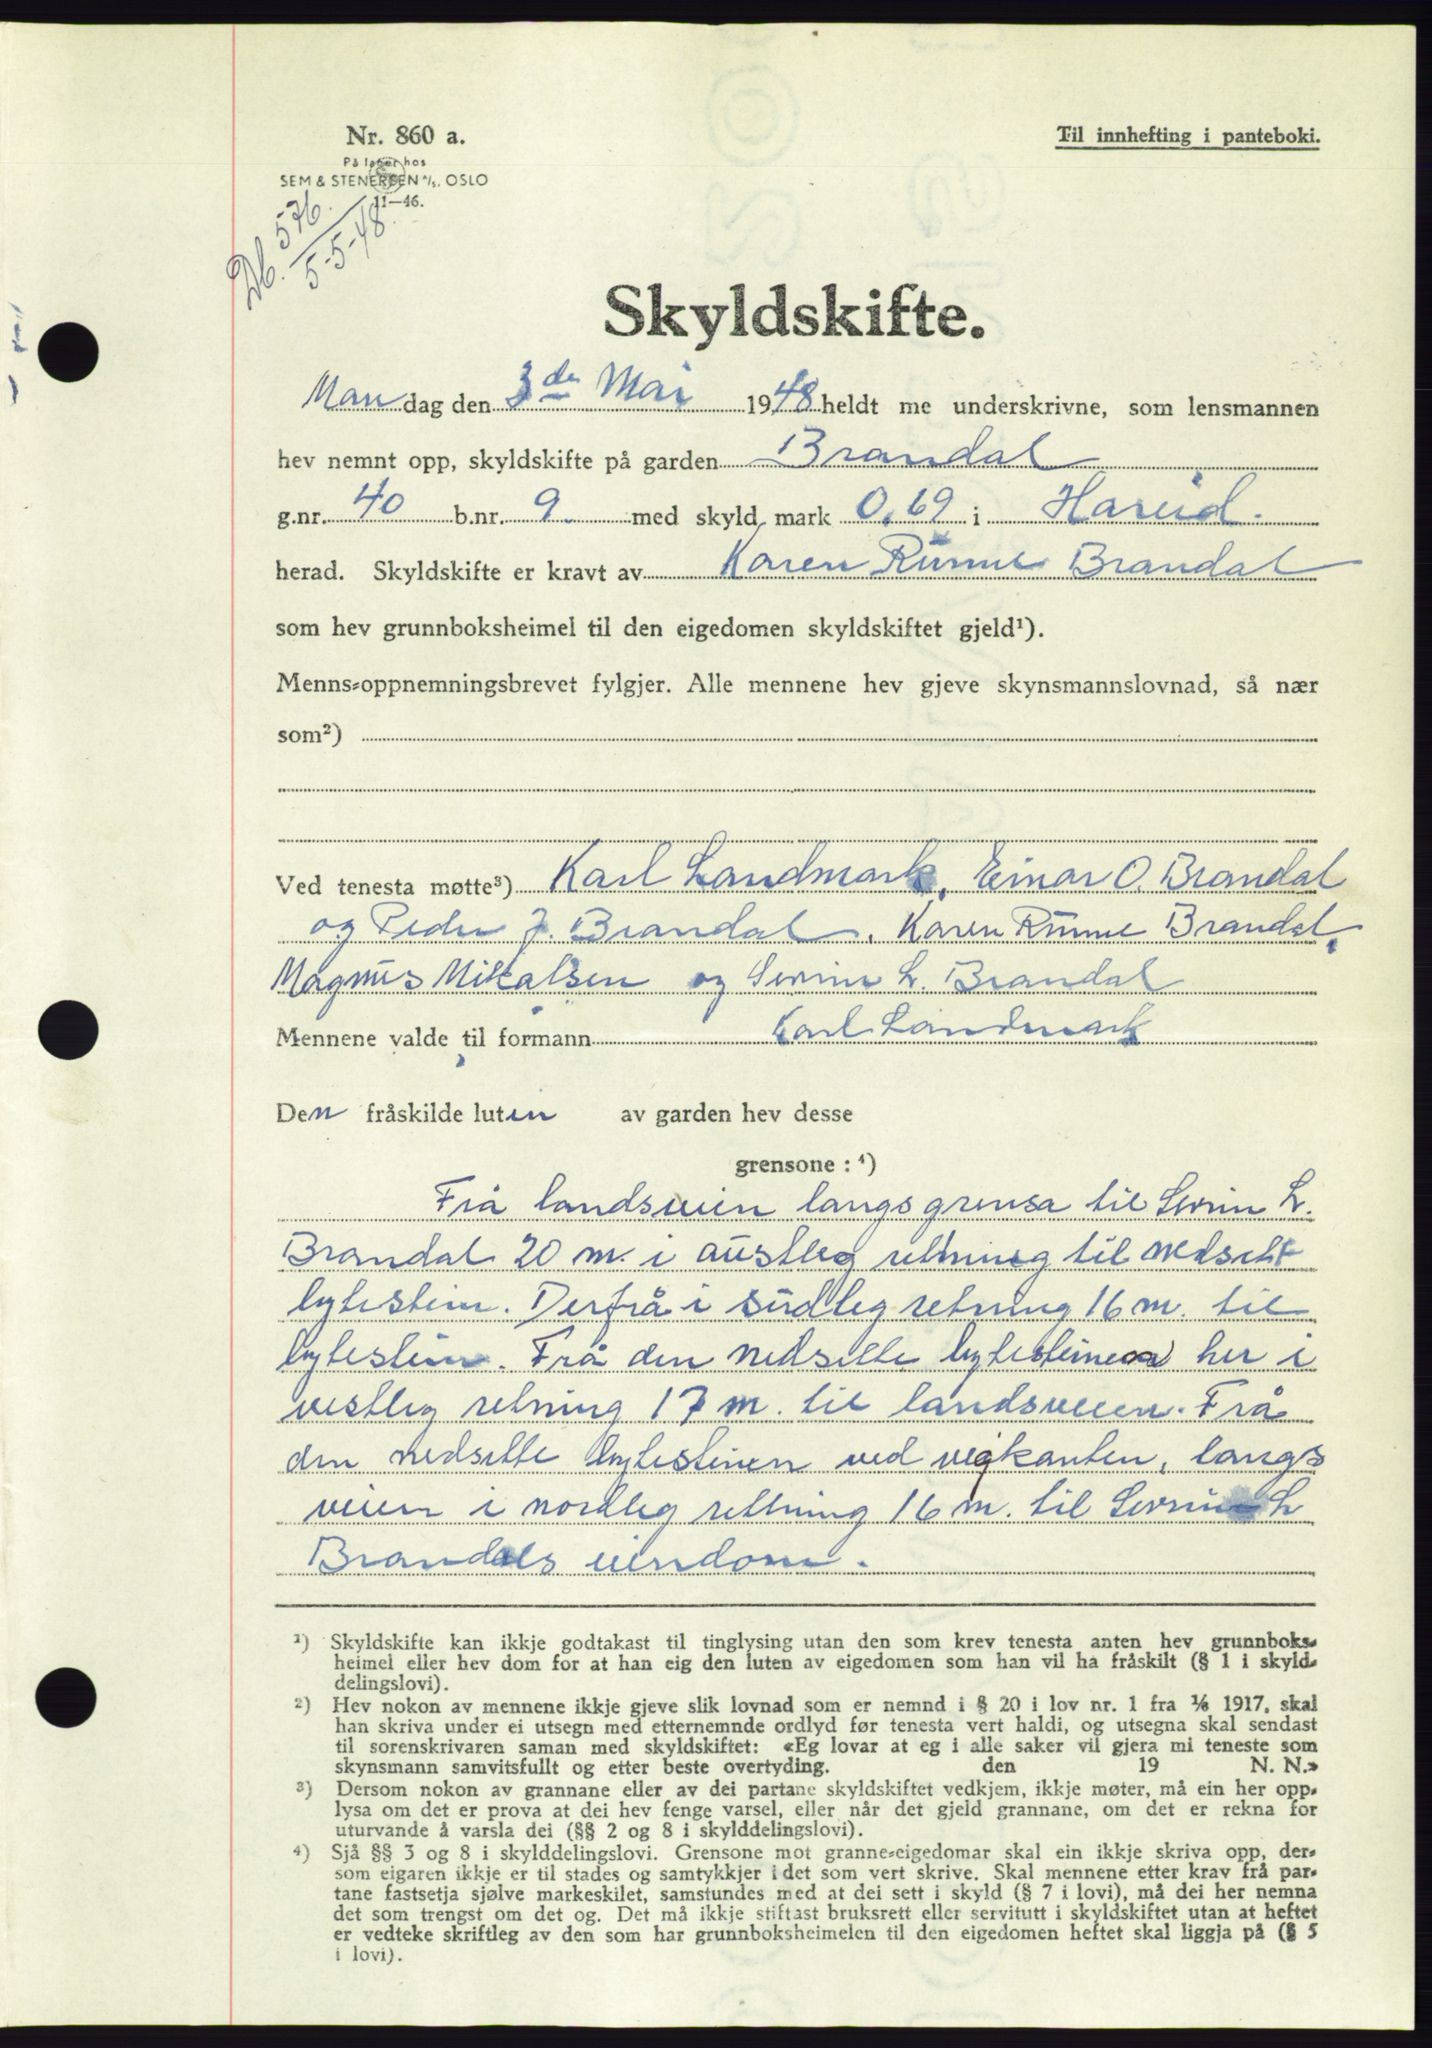 Nr. 860 a.
Til innhefting i panteboki.
På lager hos
SEM & STENERSEN A/S. OSLO
11—46.
Db. 576
5-5-48.
Skyldskifte.
Mandag den 3de Mai 1948 heldt me underskrivne, som lensmannen
hev nemnt opp, skyldskifte på garden Brandal
g.nr. 40 b.nr. 9. med skyld mark 0,69 i Hareid.
herad. Skyldskifte er kravt av Karen Runne Brandal
som hev grunnboksheimel til den eigedomen skyldskiftet gjeld¹).
Menns-oppnemningsbrevet fylgjer. Alle mennene hev gjeve skynsmannslovnad, så nær
som²)
Ved tenesta møtte³) Karl Landmark, Einar O. Brandal
og Peder J. Brandal, Karen Runne Brandal,
Magnus Mikalsen og Severin L. Brandal
Mennene valde til formann Karl Landmark
Den fråskilde lutin av garden hev desse
grensone : ⁴)
Frå landsveien langs grensa til Severin L.
Brandal 20 m. i austleg retning til nedsett
bytestein. Derfrå i sudleg retning 16 m. til
bytestein. Frå den nedsette bytesteinen her i
vestleg retning 17 m. til landsveien. Frå
den nedsette bytesteinen ved vegkanten, langs
veien i nordleg rettning 16 m. til Severin L
Brandals eiendom.
¹) Skyldskifte kan ikkje godtakast til tinglysing utan den som krev tenesta anten hev grunnboks-
heimel eller hev dom for at han eig den luten av eigedomen som han vil ha fråskilt (§ 1 i skyld-
delingslovi).
²) Hev nokon av mennene ikkje gjeve slik lovnad som er nemnd i § 20 i lov nr. 1 fra ⅛ 1917, skal
han skriva under ei utsegn med etternemnde ordlyd før tenesta vert haldi, og utsegna skal sendast
til sorenskrivaren saman med skyldskiftet: «Eg lovar at eg i alle saker vil gjera mi teneste som
skynsmann samvitsfullt og etter beste overtyding. den 19 N. N.»
³) Dersom nokon av grannane eller av dei partane skyldskiftet vedkjem, ikkje møter, må ein her opp-
lysa om det er prova at dei hev fenge varsel, eller når det gjeld grannane, om det er rekna for
uturvande å varsla dei (§§ 2 og 8 i skylddelingslovi).
⁴) Sjå §§ 3 og 8 i skylddelingslovi. Grensone mot granne-eigedomar skal ein ikkje skriva opp, der-
som eigaren ikkje er til stades og samtykkjer i det som vert skrive. Skal mennene etter krav frå par-
tane fastsetja sjølve markeskilet, samstundes med at dei sett i skyld (§ 7 i lovi), må dei her nemna
det som trengst om det og. Det må ikkje stiftast bruksrett eller servitutt i skyldskiftet utan at heftet
er vedteke skriftleg av den som har grunnboksheimelen til den eigedomen heftet skal liggja på (§ 5
i lovi).